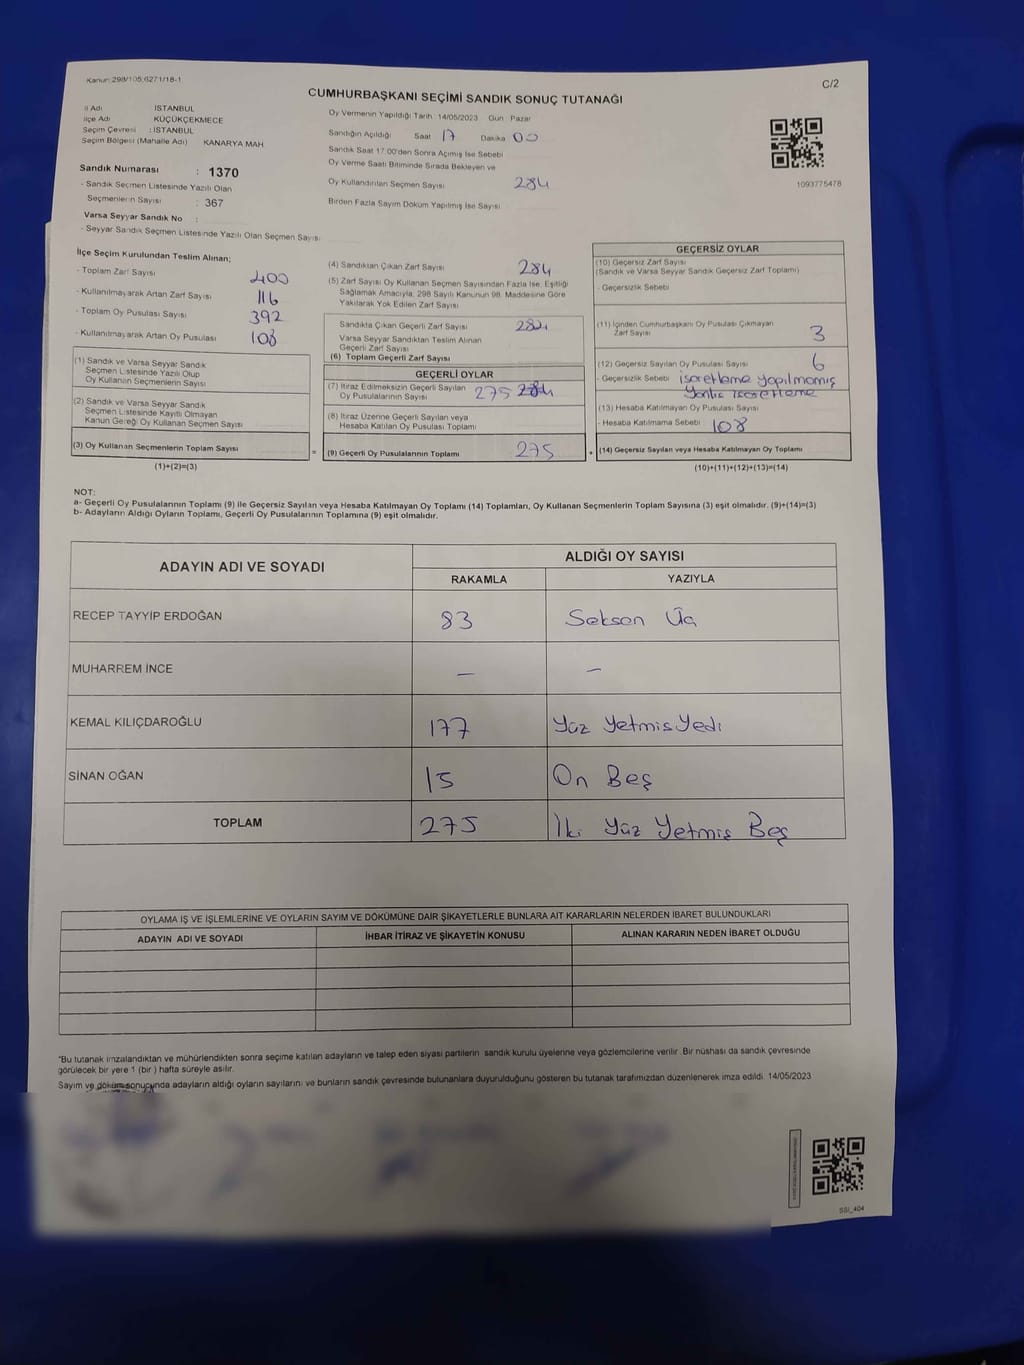 Kanun: 298/105;6271/18-1
C/2
CUMHURBAŞKANI SEÇİMİ SANDIK SONUÇ TUTANAĞI
İl Adı İSTANBUL
İlçe Adı KÜÇÜKÇEKMECE
Seçim Çevresi : İSTANBUL
Seçim Bölgesi (Mahalle Adı) KANARYA MAH.
Sandık Numarası : 1370
- Sandık Seçmen Listesinde Yazılı Olan
Seçmenlerin Sayısı : 367
Varsa Seyyar Sandık No :
- Seyyar Sandık Seçmen Listesinde Yazılı Olan Seçmen Sayısı:
Oy Vermenin Yapıldığı Tarih 14/05/2023 Gün: Pazar
Sandığın Açıldığı Saat 17 Dakika 00
Sandık Saat 17:00'den Sonra Açılmış İse Sebebi
Oy Verme Saati Bitiminde Sırada Bekleyen ve
Oy Kullandırılan Seçmen Sayısı 284
Birden Fazla Sayım Döküm Yapılmış İse Sayısı
1093775478
İlçe Seçim Kurulundan Teslim Alınan;
- Toplam Zarf Sayısı 400
- Kullanılmayarak Artan Zarf Sayısı 116
- Toplam Oy Pusulası Sayısı 392
- Kullanılmayarak Artan Oy Pusulası 108
(1) Sandık ve Varsa Seyyar Sandık
Seçmen Listesinde Yazılı Olup
Oy Kullanan Seçmenlerin Sayısı
(2) Sandık ve Varsa Seyyar Sandık
Seçmen Listesinde Kayıtlı Olmayan
Kanun Gereği Oy Kullanan Seçmen Sayısı
(3) Oy Kullanan Seçmenlerin Toplam Sayısı
=
(1)+(2)=(3)
(4) Sandıktan Çıkan Zarf Sayısı 284
(5) Zarf Sayısı Oy Kullanan Seçmen Sayısından Fazla İse, Eşitliği
Sağlamak Amacıyla, 298 Sayılı Kanunun 98. Maddesine Göre
Yakılarak Yok Edilen Zarf Sayısı
Sandıkta Çıkan Geçerli Zarf Sayısı 284
Varsa Seyyar Sandıktan Teslim Alınan
Geçerli Zarf Sayısı
(6) Toplam Geçerli Zarf Sayısı
GEÇERLİ OYLAR
(7) İtiraz Edilmeksizin Geçerli Sayılan
Oy Pusulalarının Sayısı 275 284
(8) İtiraz Üzerine Geçerli Sayılan veya
Hesaba Katılan Oy Pusulası Toplamı
(9) Geçerli Oy Pusulalarının Toplamı 275
+
GEÇERSİZ OYLAR
(10) Geçersiz Zarf Sayısı
(Sandık ve Varsa Seyyar Sandık Geçersiz Zarf Toplamı)
- Geçersizlik Sebebi
(11) İçinden Cumhurbaşkanı Oy Pusulası Çıkmayan
Zarf Sayısı 3
(12) Geçersiz Sayılan Oy Pusulası Sayısı 6
- Geçersizlik Sebebi işaretleme yapılmamış
Yanlış işaretleme
(13) Hesaba Katılmayan Oy Pusulası Sayısı
- Hesaba Katılmama Sebebi 108
(14) Geçersiz Sayılan veya Hesaba Katılmayan Oy Toplamı
(10)+(11)+(12)+(13)=(14)
NOT:
a- Geçerli Oy Pusulalarının Toplamı (9) ile Geçersiz Sayılan veya Hesaba Katılmayan Oy Toplamı (14) Toplamları, Oy Kullanan Seçmenlerin Toplam Sayısına (3) eşit olmalıdır. (9)+(14)=(3)
b- Adayların Aldığı Oyların Toplamı, Geçerli Oy Pusulalarının Toplamına (9) eşit olmalıdır.
ADAYIN ADI VE SOYADI
ALDIĞI OY SAYISI
RAKAMLA YAZIYLA
RECEP TAYYİP ERDOĞAN 83 Seksen Üç
MUHARREM İNCE — —
KEMAL KILIÇDAROĞLU 177 Yüz Yetmiş Yedi
SİNAN OĞAN 15 On Beş
TOPLAM 275 İki Yüz Yetmiş Beş
OYLAMA İŞ VE İŞLEMLERİNE VE OYLARIN SAYIM VE DÖKÜMÜNE DAİR ŞİKAYETLERLE BUNLARA AİT KARARLARIN NELERDEN İBARET BULUNDUKLARI
ADAYIN ADI VE SOYADI İHBAR İTİRAZ VE ŞİKAYETİN KONUSU ALINAN KARARIN NEDEN İBARET OLDUĞU
*Bu tutanak imzalandıktan ve mühürlendikten sonra seçime katılan adayların ve talep eden siyasi partilerin sandık kurulu üyelerine veya gözlemcilerine verilir. Bir nüshası da sandık çevresinde
görülecek bir yere 1 (bir) hafta süreyle asılır.
Sayım ve döküm sonucunda adayların aldığı oyların sayılarını ve bunların sandık çevresinde bulunanlara duyurulduğunu gösteren bu tutanak tarafımızdan düzenlenerek imza edildi. 14/05/2023
SSI_404